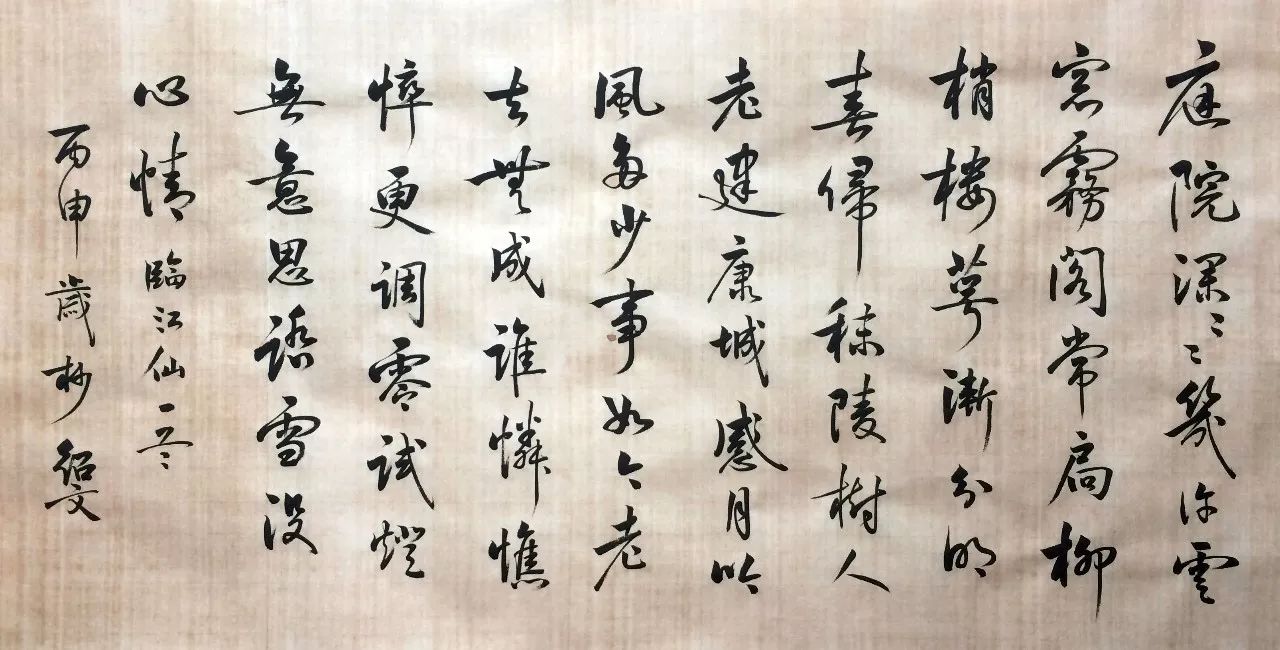 庭院深〻〻幾許雲
窓霧閣常扃柳
梢梅萼漸分明
春歸秣陵樹人
老建康城感月吟
風多少事如今老
去無成誰憐憔
悴更調零試燈
無意思踏雪沒
心情 臨江仙一首
丙申歲杪